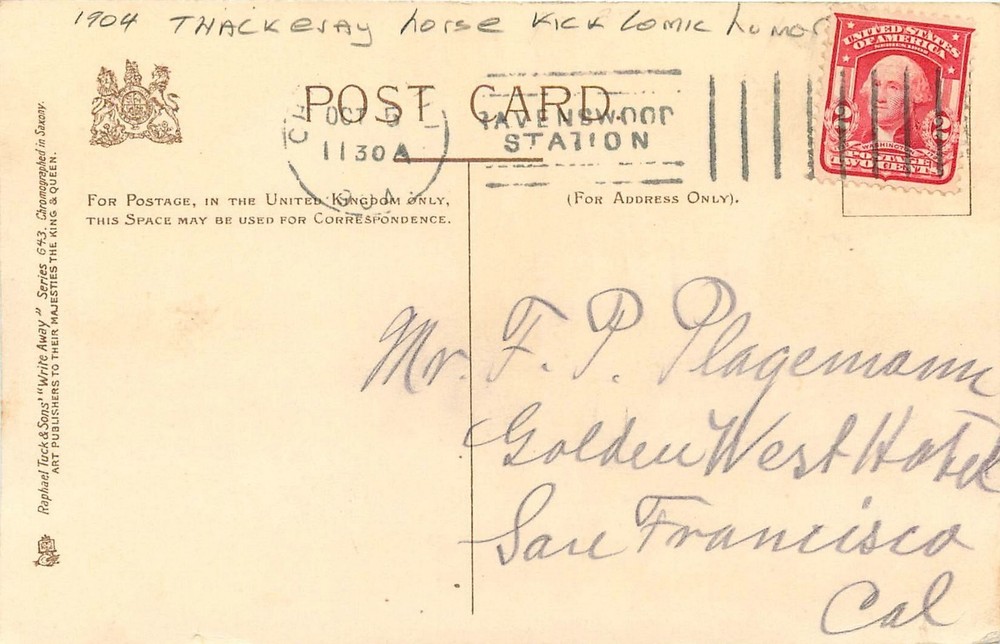 1904 THACKERAY horse KICK Comic humor
POST CARD.
OCT 5
11 30 A
RAVENSWOOD
STATION
UNITED STATES
OF AMERICA
SERIES 1902
2 2
WASHINGTON
POSTAGE
TWO CENTS
FOR POSTAGE, IN THE UNITED KINGDOM ONLY,
THIS SPACE MAY BE USED FOR CORRESPONDENCE.
(FOR ADDRESS ONLY).
Raphael Tuck & Sons' "Write Away" Series 643. Chromographed in Saxony.
ART PUBLISHERS TO THEIR MAJESTIES THE KING & QUEEN.
Mr. F. P. Plagemann
Golden West Hotel
San Francisco
Cal